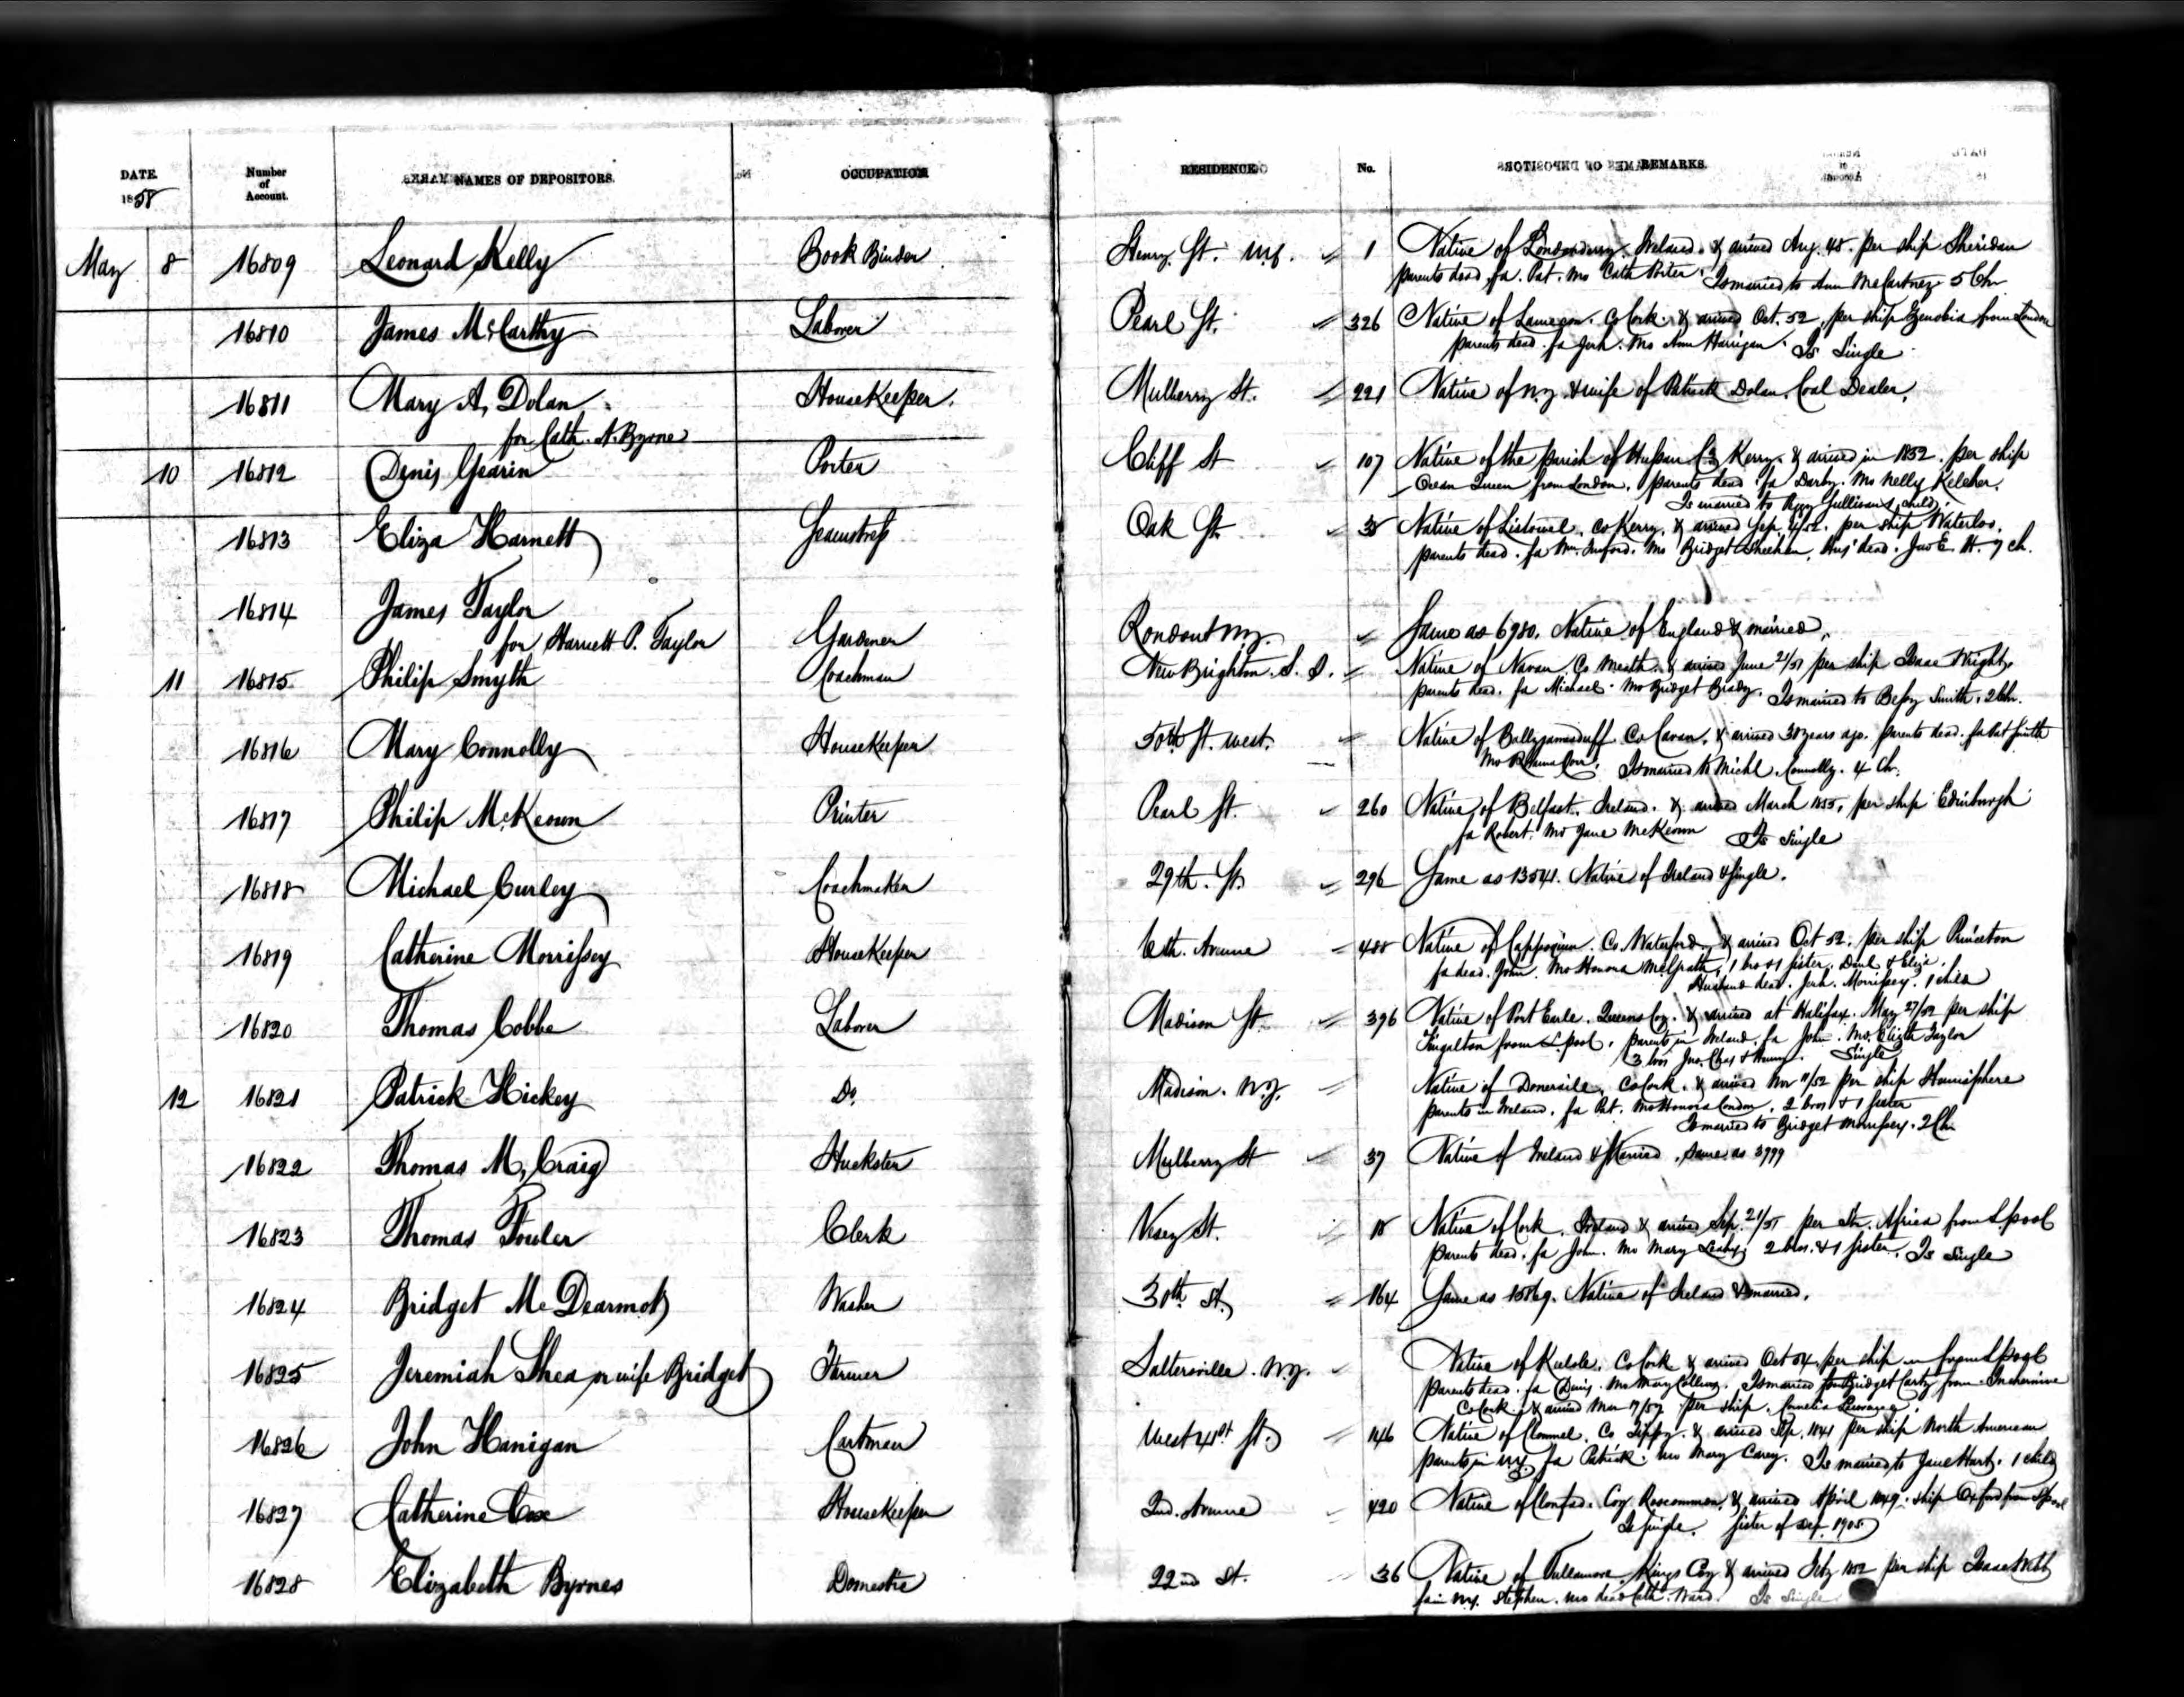 DATE. Number of Account. NAMES OF DEPOSITORS. OCCUPATION RESIDENCE No. REMARKS.
1858
May 8 16809 Leonard Kelly Book Binder Henry St. N.Y. 1 Native of Londonderry, Ireland. & arrived Aug. 48. per ship Sheridan
parents dead, fa. Pat. Mo Cath Porter. Is married to Ann McCartney 5 Chn
16810 James McCarthy Laborer Pearl St. 326 Native of Co Cork. & arrived Oct. 52, per ship Zenobia from London
parents dead. fa Jerh. Mo Ann Harrigan. Is Single
16811 Mary A. Dolan HouseKeeper. Mulberry St. 221 Native of N.Y. & wife of Patrick Dolan. Coal Dealer.
for Cath. A. Byrne
10 16812 Denis Gearin Porter Cliff St 107 Native of the parish of Co Kerry. & arrived in 1852. per ship
Ocean Queen from London. parents dead. fa Darby. Mo Nelly Keleher.
Is married to Peggy Sullivan 1 child
16813 Eliza Harnett Seamstress Oak St. 35 Native of Listowel. Co Kerry. & arrived Sep. /52. per ship Waterloo.
parents dead. fa Wm. Mo Bridget Sheehan. Hus' dead. Jno E. H. 7 ch.
16814 James Taylor
for Harriett P. Taylor Gardener Rondout N.Y. Same as 6980. Native of England & married.
11 16815 Philip Smyth Coachman New Brighton. S. I. Native of Navan Co Meath. & arrived June 2/51 per ship Isaac Wright.
parents dead. fa Michael. Mo Bridget Brady. Is married to Bessy Smith. 2 Chn.
16816 Mary Connolly HouseKeeper 50th St. west. Native of Ballyjamesduff Co Cavan. & arrived 30 years ago. Parents dead. fa Pat Smith
Mo Is married to Michl. Connolly. 4 Ch.
16817 Philip McKeown Printer Pearl St. 260 Native of Belfast. Ireland. & arrived March 1855, per ship Edinburgh
fa Robert. Mo Jane McKeown Is Single
16818 Michael Curley Coachmaker 29th. St. 296 Same as 13541. Native of Ireland & Single.
16819 Catherine Morrissey HouseKeeper 6th. Avenue 488 Native of Cappoquin. Co. Waterford. & arrived Oct 52. per ship Princeton
fa dead. John. Mo Honora McGrath, 1 bro & 1 sister. Danl & Eliza.
Husband dead. Jerh. Morrissey. 1 child
16820 Thomas Cobbe Laborer Madison St. 396 Native of Port Earle. Queens Coy. & arrived at Halifax. May 27/52 per ship
from L.pool. parents in Ireland. fa John. Mo. Elizth Taylor
3 bros Jno. Chas & Single
12 16821 Patrick Hickey Do. Madison. N.J. Native of Doneraile. Co Cork. & arrived Nov 11/52 per ship Hemisphere
parents in Ireland. fa Pat. Mo Honora Condon. 2 bros & 1 sister
Is married to Bridget Morrissey. 2 Chn
16822 Thomas McCraig Huckster Mulberry St 37 Native of Ireland & Married. Same as 3799
16823 Thomas Fowler Clerk Vesey St. 18 Native of Cork. Ireland & arrived Sep. 21/51 per Str. Africa from L.pool
parents dead. fa John. Mo Mary Leahy. 2 bros. & 1 sister. Is Single
16824 Bridget McDearmot Washer 30th St. 164 Same as 15869. Native of Ireland & married.
16825 Jeremiah Shea or wife Bridget Farmer Saltersville. N.J. Native of Co Cork & arrived Oct 54. per ship from L.pool
parents dead. fa Denis. Mo Mary Collins. Is married to Bridget Carty from
Co Cork. & arrived Mar 17/57 per ship. Cornelia
16826 John Hanigan Cartman West 41st St. 146 Native of Clonmel. Co Tippy. & arrived Sep. 1841 per ship North American
parents in N.Y. fa Patrick. Mo Mary Carey. Is married to Jane Hart. 1 child
16827 Catherine Cox HouseKeeper 2nd. Avenue 420 Native of Coy. Roscommon. & arrived April 1849. ship Oxford from L.pool
Is single. Sister of 1905
16828 Elizabeth Byrnes Domestic 22nd St. 36 Native of Tullamore Kings Coy & arrived Feby 1852 per ship Isaac Webb
fa in N.Y. Stephen. Mo dead Cath. Ward. Is Single